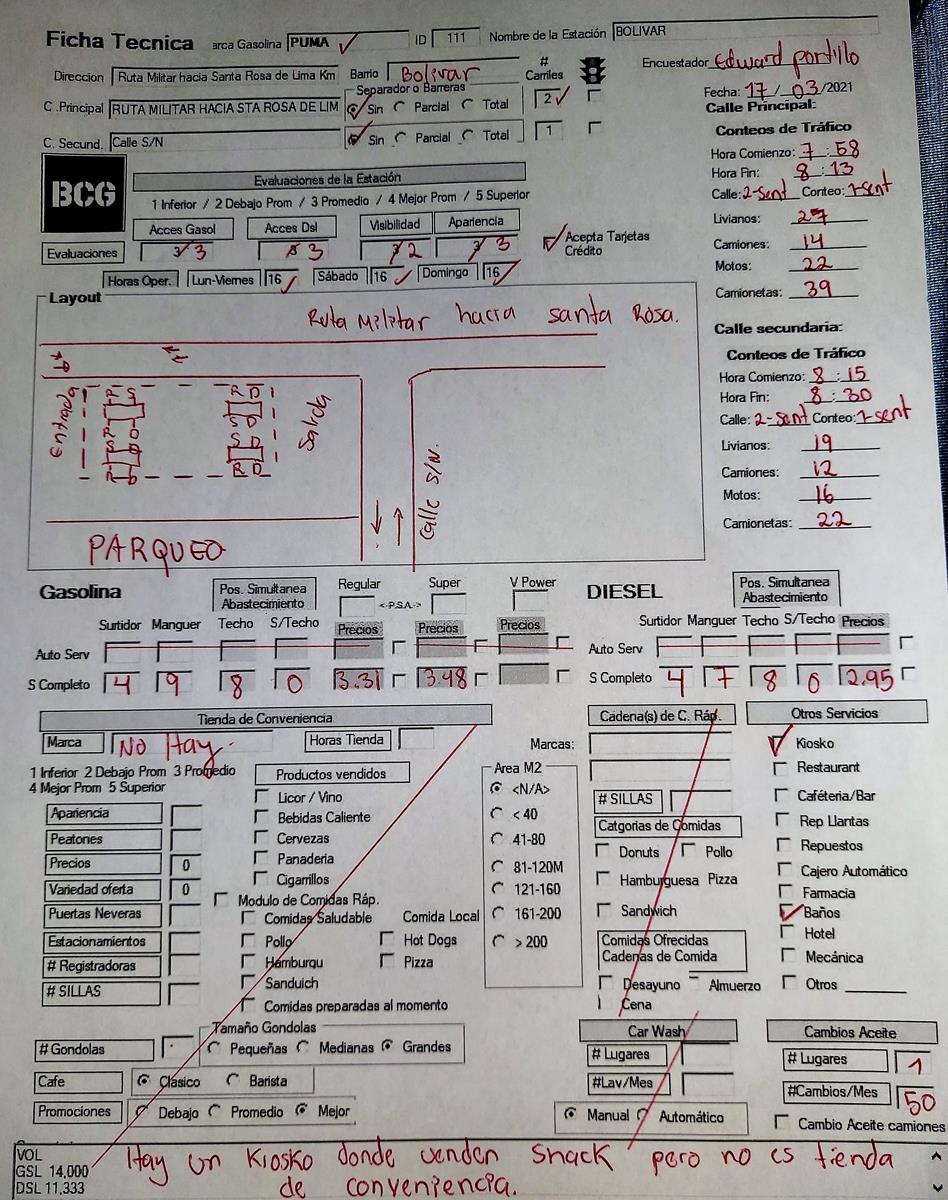 Ficha Tecnica arca Gasolina PUMA ID 111 Nombre de la Estación BOLIVAR
Encuestador Edward portillo
Direccion Ruta Militar hacia Santa Rosa de Lima Km Barrio Bolivar # Carriles
Fecha: 17/03/2021
Separador o Barreras
C .Principal RUTA MILITAR HACIA STA ROSA DE LIM Sin Parcial Total 2
C. Secund. Calle S/N Sin Parcial Total 1
Calle Principal:
Conteos de Tráfico
Hora Comienzo: 7:58
Hora Fin: 8:13
Calle: 2-sent Conteo: 1-sent
Livianos: 27
Camiones: 14
Motos: 22
Camionetas: 39
BCG
Evaluaciones de la Estación
1 Inferior / 2 Debajo Prom / 3 Promedio / 4 Mejor Prom / 5 Superior
Acces Gasol Acces Dsl Visibilidad Apariencia
Evaluaciones 3 3 2 3
Acepta Tarjetas
Crédito
Horas Oper. Lun-Viernes 16 Sábado 16 Domingo 16
Layout
Ruta Militar hacia santa Rosa.
Entrada
R S
R D
R D
S D
S D
S D
R D
R D
Salida
Calle S/N.
PARQUEO
Calle secundaria:
Conteos de Tráfico
Hora Comienzo: 8:15
Hora Fin: 8:30
Calle: 2-sent Conteo: 1-sent
Livianos: 19
Camiones: 12
Motos: 16
Camionetas: 22
Gasolina
Pos. Simultanea
Abastecimiento
Regular Super V Power
<-P.S.A.->
Surtidor Manguer Techo S/Techo Precios Precios Precios
Auto Serv
S Completo 4 9 8 0 3.31 3.48
DIESEL
Pos. Simultanea
Abastecimiento
Surtidor Manguer Techo S/Techo Precios
Auto Serv
S Completo 4 7 8 0 2.95
Tienda de Conveniencia
Marca No Hay. Horas Tienda
1 Inferior 2 Debajo Prom 3 Promedio
4 Mejor Prom 5 Superior
Apariencia
Peatones
Precios 0
Variedad oferta 0
Puertas Neveras
Estacionamientos
# Registradoras
# SILLAS
Productos vendidos
Licor / Vino
Bebidas Caliente
Cervezas
Panaderia
Cigarrillos
Modulo de Comidas Ráp.
Comidas Saludable Comida Local
Pollo Hot Dogs
Hamburqu Pizza
Sanduich
Comidas preparadas al momento
Area M2
<N/A>
< 40
41-80
81-120M
121-160
161-200
> 200
# Gondolas
Tamaño Gondolas
Pequeñas Medianas Grandes
Cafe Clasico Barista
Promociones Debajo Promedio Mejor
Cadena(s) de C. Ráp.
Marcas:
# SILLAS
Catgorias de Comidas
Donuts Pollo
Hamburguesa Pizza
Sandwich
Comidas Ofrecidas
Cadenas de Comida
Desayuno Almuerzo
Cena
Car Wash
# Lugares
#Lav/Mes
Manual Automático
Otros Servicios
Kiosko
Restaurant
Caféteria/Bar
Rep Llantas
Repuestos
Cajero Automático
Farmacia
Baños
Hotel
Mecánica
Otros
Cambios Aceite
# Lugares 1
#Cambios/Mes 50
Cambio Aceite camiones
VOL
GSL 14,000
DSL 11,333
Hay un Kiosko donde venden snack pero no es tienda
de conveniencia.